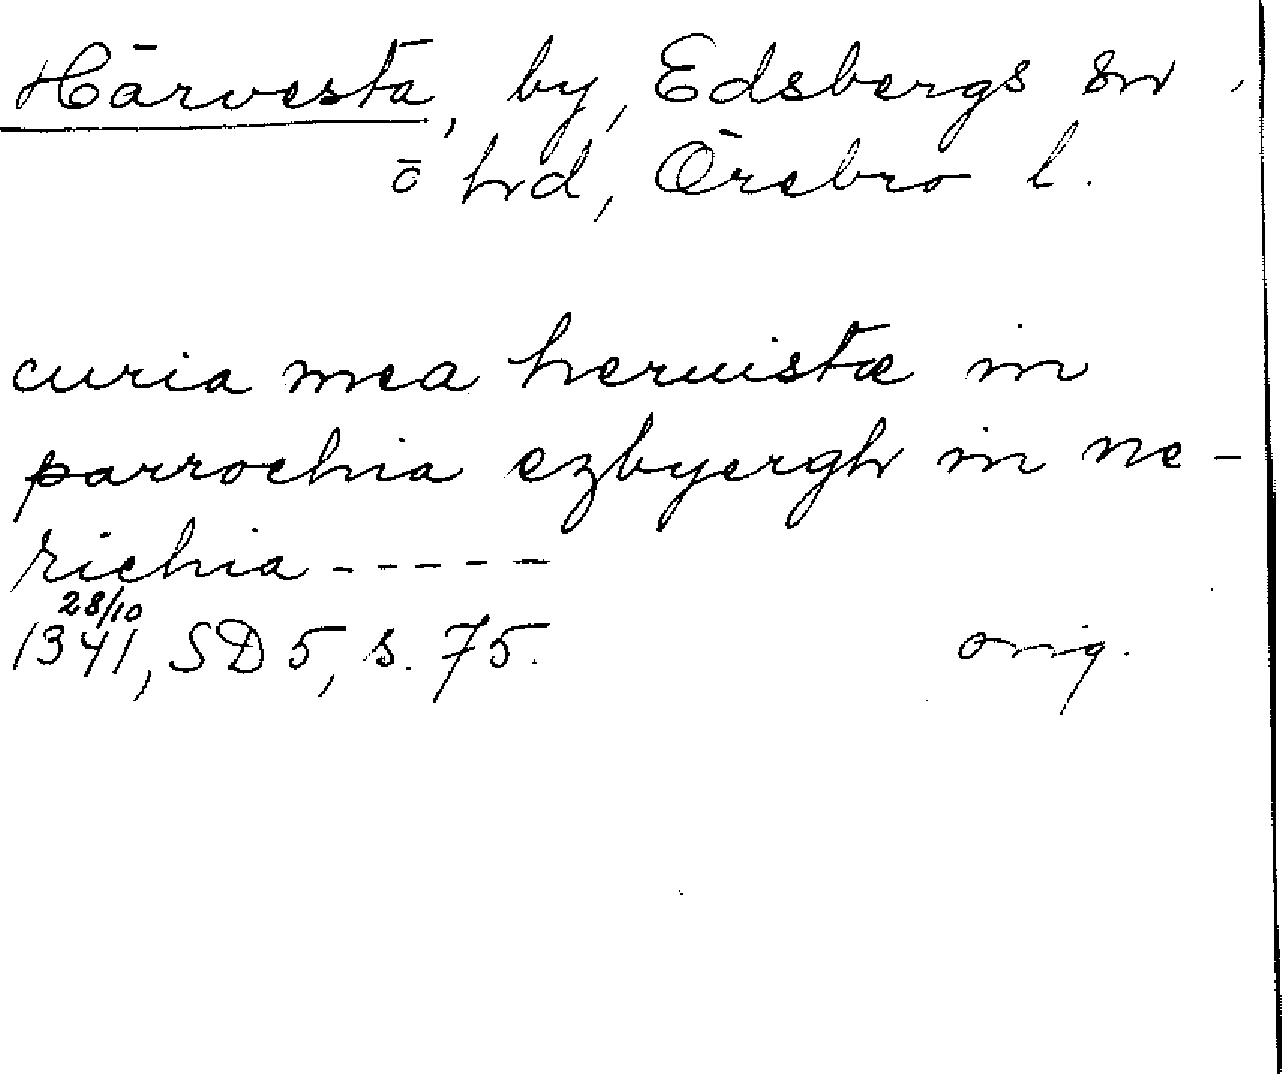 Härvesta, by, Edsbergs sn
o hd, Örebro l.
curia mea heruistæ in
parrochia ezbyergh in ne-
richia -----
28/10
1341, SD 5, s. 75. orig.